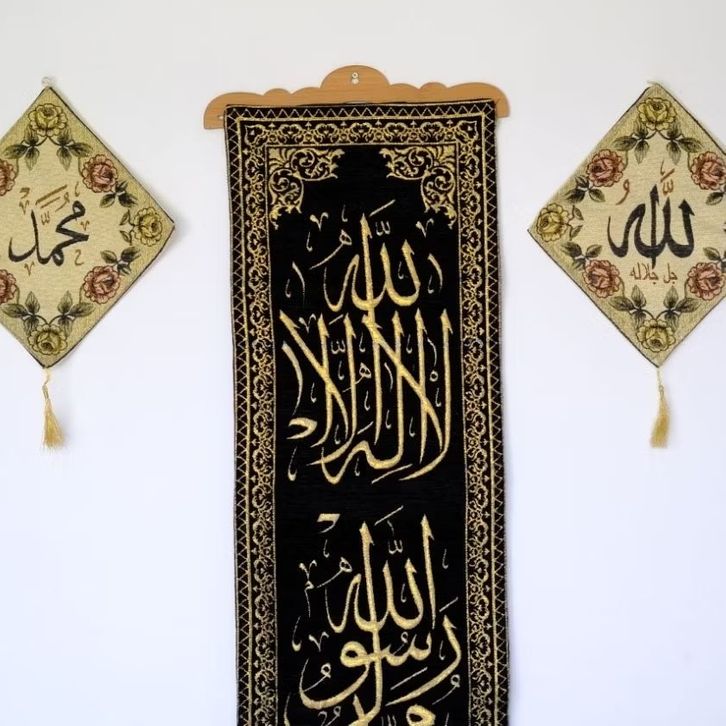 الله
جل جلاله
لا إله إلا الله
محمد رسول الله
محمد